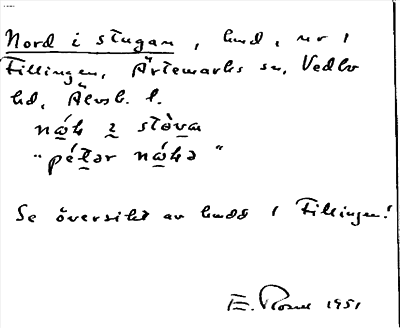 Nord i stugan, hmd, nr 1
Fillingen, Ärtemarks sn, Vedbo
hd, Älvsb. l.
nǿk i stòva
"pétər nǿkə"
Se översikt av hmdd i Fillingen!
E. Rosell 1951